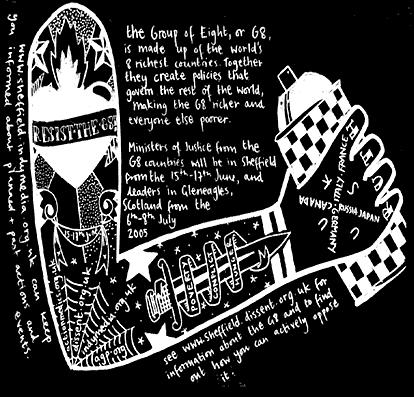 the Group of Eight, or G8,
is made up of the world's
8 richest countries. Together
they create policies that
govern the rest of the world,
making the G8 richer and
everyone else poorer.
Ministers of Justice from the
G8 countries will be in Sheffield
from the 15th-17th June, and
leaders in Gleneagles,
Scotland from the
6th-8th July
2005
RESIST THE G8
www.sheffield.indymedia.org.uk can keep
you informed about planned + past actions and
events.
dissent.org.uk
indymedia.org.uk
agp.org
POVERTY
CONFLICT
INJUSTICE
FRANCE
ITALY
GERMANY
JAPAN
RUSSIA
CANADA
U S
U K
see www.sheffield.dissent.org.uk for
information about the G8 and to find
out how you can actively oppose
it.